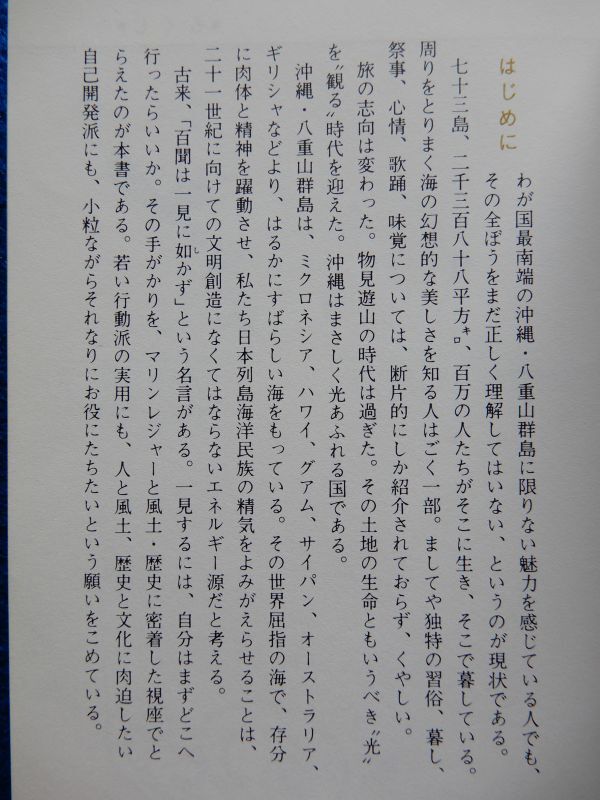 はじめに
わが国最南端の沖縄・八重山群島に限りない魅力を感じている人でも、
その全ぼうをまだ正しく理解してはいない、というのが現状である。
七十三島、二千三百八十八平方㌔、百万の人たちがそこに生き、そこで暮している。
周りをとりまく海の幻想的な美しさを知る人はごく一部。ましてや独特の習俗、暮し、
祭事、心情、歌踊、味覚については、断片的にしか紹介されておらず、くやしい。
旅の志向は変わった。物見遊山の時代は過ぎた。その土地の生命ともいうべき〝光〟
を〝観る〟時代を迎えた。沖縄はまさしく光あふれる国である。
沖縄・八重山群島は、ミクロネシア、ハワイ、グアム、サイパン、オーストラリア、
ギリシャなどより、はるかにすばらしい海をもっている。その世界屈指の海で、存分
に肉体と精神を躍動させ、私たち日本列島海洋民族の精気をよみがえらせることは、
二十一世紀に向けての文明創造になくてはならないエネルギー源だと考える。
古来、「百聞は一見に如かず」という名言がある。一見するには、自分はまずどこへ
行ったらいいか。その手がかりを、マリンレジャーと風土・歴史に密着した視座でと
らえたのが本書である。若い行動派の実用にも、人と風土、歴史と文化に肉迫したい
自己開発派にも、小粒ながらそれなりにお役にたちたいという願いをこめている。